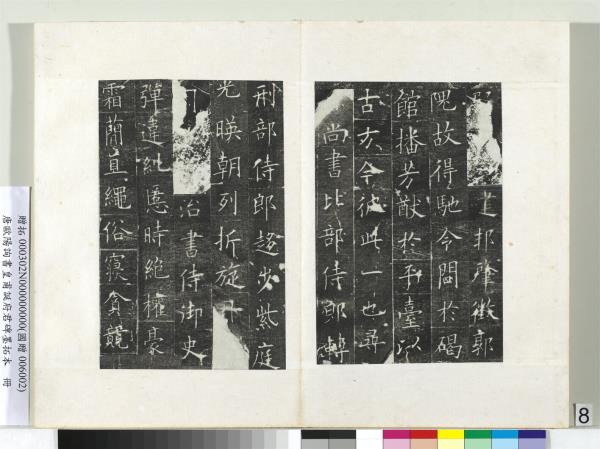 邦肇徵郭
隗故得馳令聞於碣
館播芳猷於平臺以
古方今彼此一也尋
尚書比部侍郎轉
刑部侍郎趍步紫庭
光暎朝列折旋丹
治書侍御史
彈違糺慝時絕權豪
霜蕳直繩俗寢貪競
贈拓 000302N000000000(國贈 006002)
唐歐陽詢書皇甫誕府君碑墨拓本 冊
8